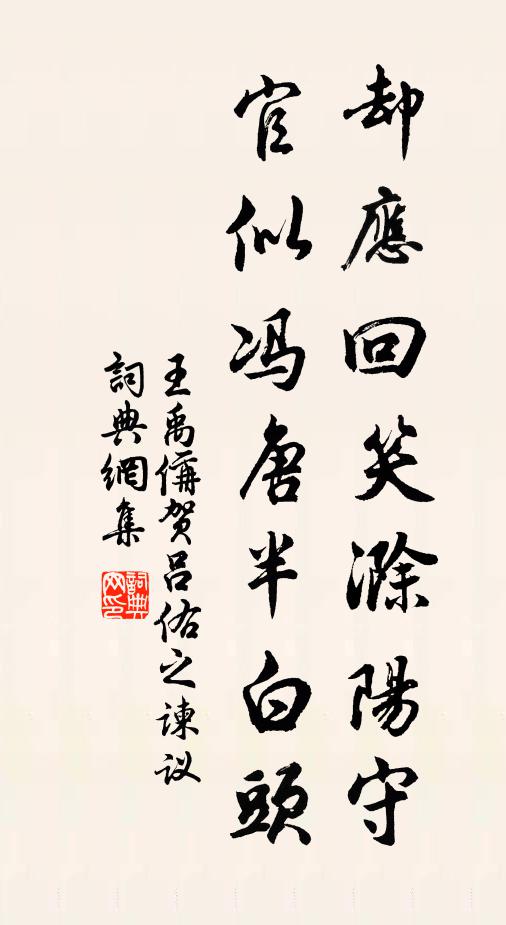 却應回笑滁陽守
官似冯唐半白頭
王禹偁贺吕佑之諫议
詞典網集
詞典网印